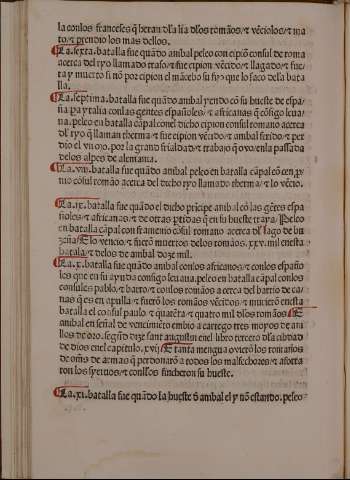 la conlos franceses q̃ heran dl'a lia dl'os romãos/⁊ vẽciolos/⁊ ma
to/⁊ prendio los mas dellos.
La.sexta.batalla fue quãdo anibal peleo con cipiõ consul de roma
acerca del ryo llamado traso/⁊ fue cipion vẽcido/⁊ llagado/⁊ fue
ta y muerto si nõ por cipion el mãcebo su fijo que lo saco dela bata
lla.
La.septima.batalla fue quãdo anibal yendo cõ su hueste de espa
ña pa ytalia conlas gentes españoles/⁊ africanas q̃ cõsigo leua
ua.peleo en batalla cãpal conel dicho cipion consul romano acerca
dl' ryo q̃ llaman therma/⁊ fue cipion vẽcido/⁊ anibal ferido/⁊ per
dio el vn ojo.por la grand frialdad/⁊ trabajo que ouo enla passada
delos alpes de alemania.
La.viij.batalla fue quãdo anibal peleo en batalla cãpal cõ
nio cõsul romão acerca del dicho ryo llamado therma/⁊ lo vẽcio.
La.ix.batalla fue quãdo el dicho príncipe anibal cõ las gẽtes espa
ñoles/⁊ africanas/⁊ de otras ptidas q̃ en su hueste traya/Peleo
en batalla cãpal con framenio cõsul romano acerca dl' lago de
/E lo vencio/⁊ fuerõ muertos delos romãos.xxv.mil enesta
batalla/⁊ delos de anibal doze mil.
La.x.batalla fue quãdo anibal conlos africanos/⁊ conlos españo
les que en su ayuda consigo leuaua.peleo en batalla cãpal conlos
consules pablo/⁊ barro/⁊ conlos romãos acerca del barrio de ca
nas q̃ es en apulla/⁊ fuerõ los romãos vẽcidos/⁊ muriero enesta
batalla el consul paulo/⁊ quarẽta/⁊ quatro mil dl'os romãos/E
anibal en señal de vencimiẽto embio a cartego tres moyos de ani
llos de oro.segũd dize sant augustin enel libro tercero dl'a cibdad
de dios enel capitulo.xvij/E tanta mengua ouierõ los romanos
de omẽs de armas q̃ perdonarõ a todos los malfechores/⁊ aforra
ron los syeruos/⁊ conellos finchieron su hueste.
La.xi.batalla fue quãdo la hueste d' anibal el y nõ estando.peleo